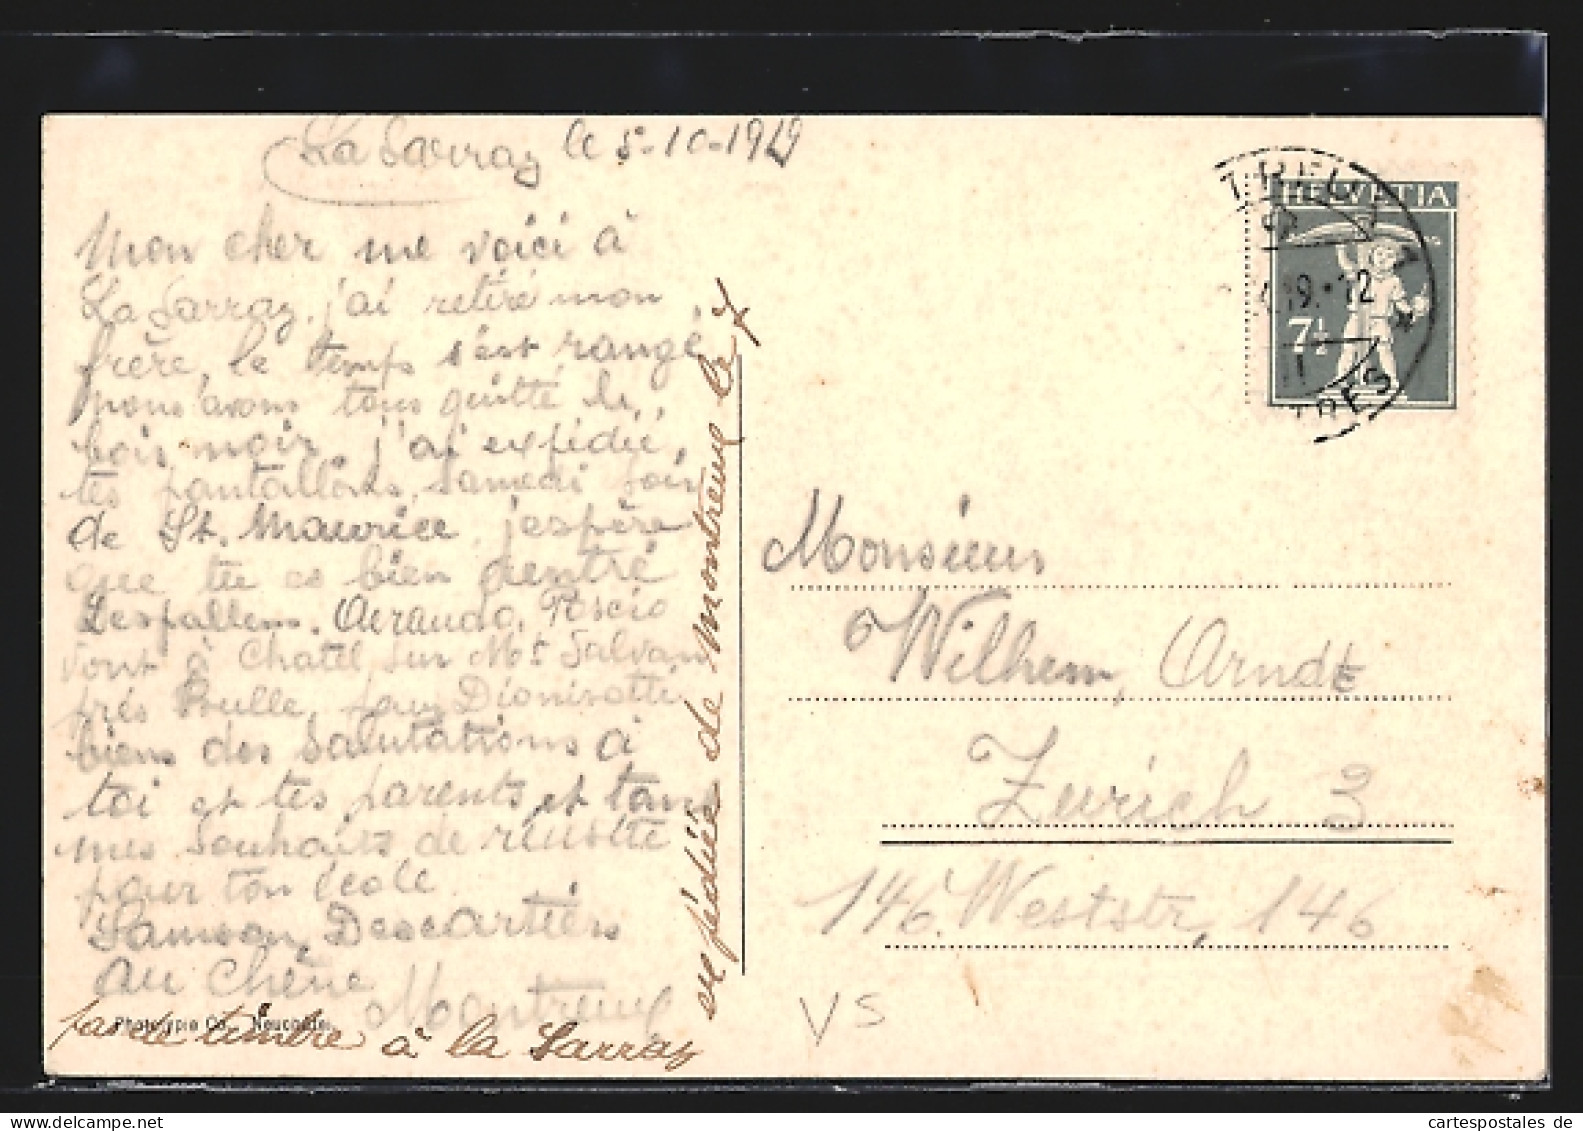 La Sarraz le 5-10-1919
Mon cher me voici à
La Sarraz, j'ai retiré mon
frère, le temps s'est rangé,
nous avons tous quitté le
bois noir, j'ai expédié,
tes pantallons, samedi soir
de St. Maurice, j'espère
que tu es bien rentré
Lespallens,
vont à Chatel sur Mt Salvan
prés Bulle,
biens des salutations à
toi et tes parents et tous
mes souhaits de réusite
pour ton école.
Samson, Descartiers
au Chêne
Montreux
expédiée de Montreux le 7
pas de timbre à la Sarraz
Phototypie Co., Neuchâtel
HELVETIA
7½
TREUX 1
19.-12
TRES
Monsieur
Wilhem, Arndt
Zurich 3
146. Weststr, 146
VS
cartespostales de